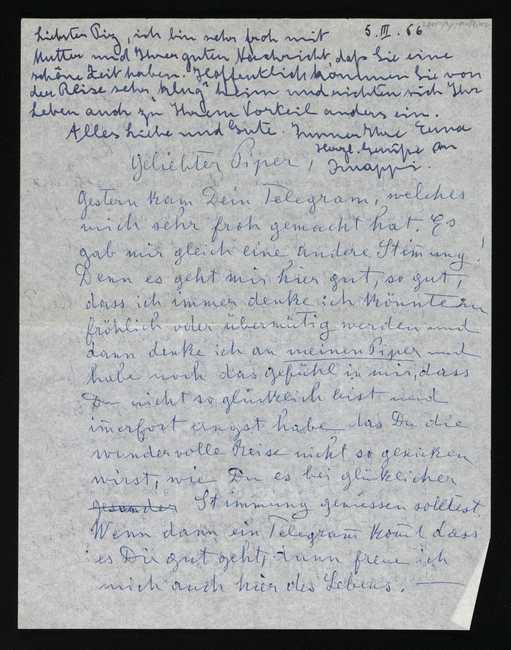 5. III. 66
Liebster Pip, ich bin sehr froh mit
Mutter und Ihrer guten Nachricht, daß Sie eine
schöne Zeit haben. Hoffentlich kommen Sie von
der Reise sehr „klug“ heim und richten sich Ihr
Leben auch zu Ihrem Vorteil anders ein.
Alles Liebe und Gute. Immer Ihre Erna
Herzl. Grüße an
Geliebter Piper,
Gestern kam Dein Telegram, welches
mich sehr froh gemacht hat. Es
gab mir gleich eine andere Stim̄ung!
Denn es geht mir hier gut, so gut,
dass ich immer denke ich könnte zu
fröhlich oder übermütig werden und
dann denke ich an meinen Piper und
habe noch das gefühl in mir, dass
Du nicht so glücklich bist und
im̄erfort angst habe das Du die
wundervolle Reise nicht so geniesen
wirst, wie Du es bei glüklicher
gesunder Stimmung geniessen solltest.
Wenn dann ein Telegram kom̄t dass
es Dir gut geht, dann freue ich
mich auch hier des Lebens. —